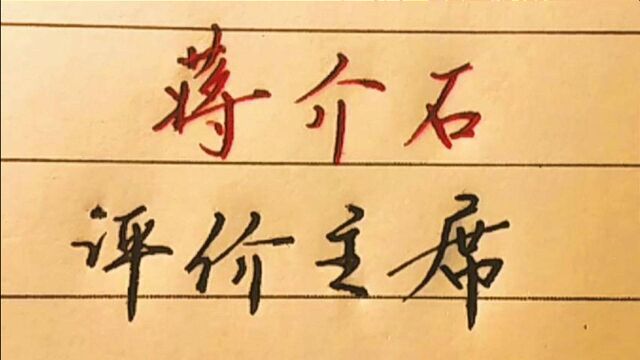 蒋介石
评价主席